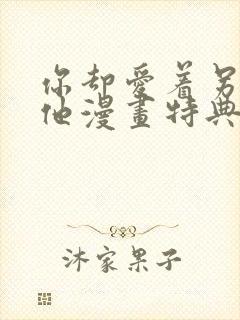 你却愛着另
他漫畫特典
沐家果子